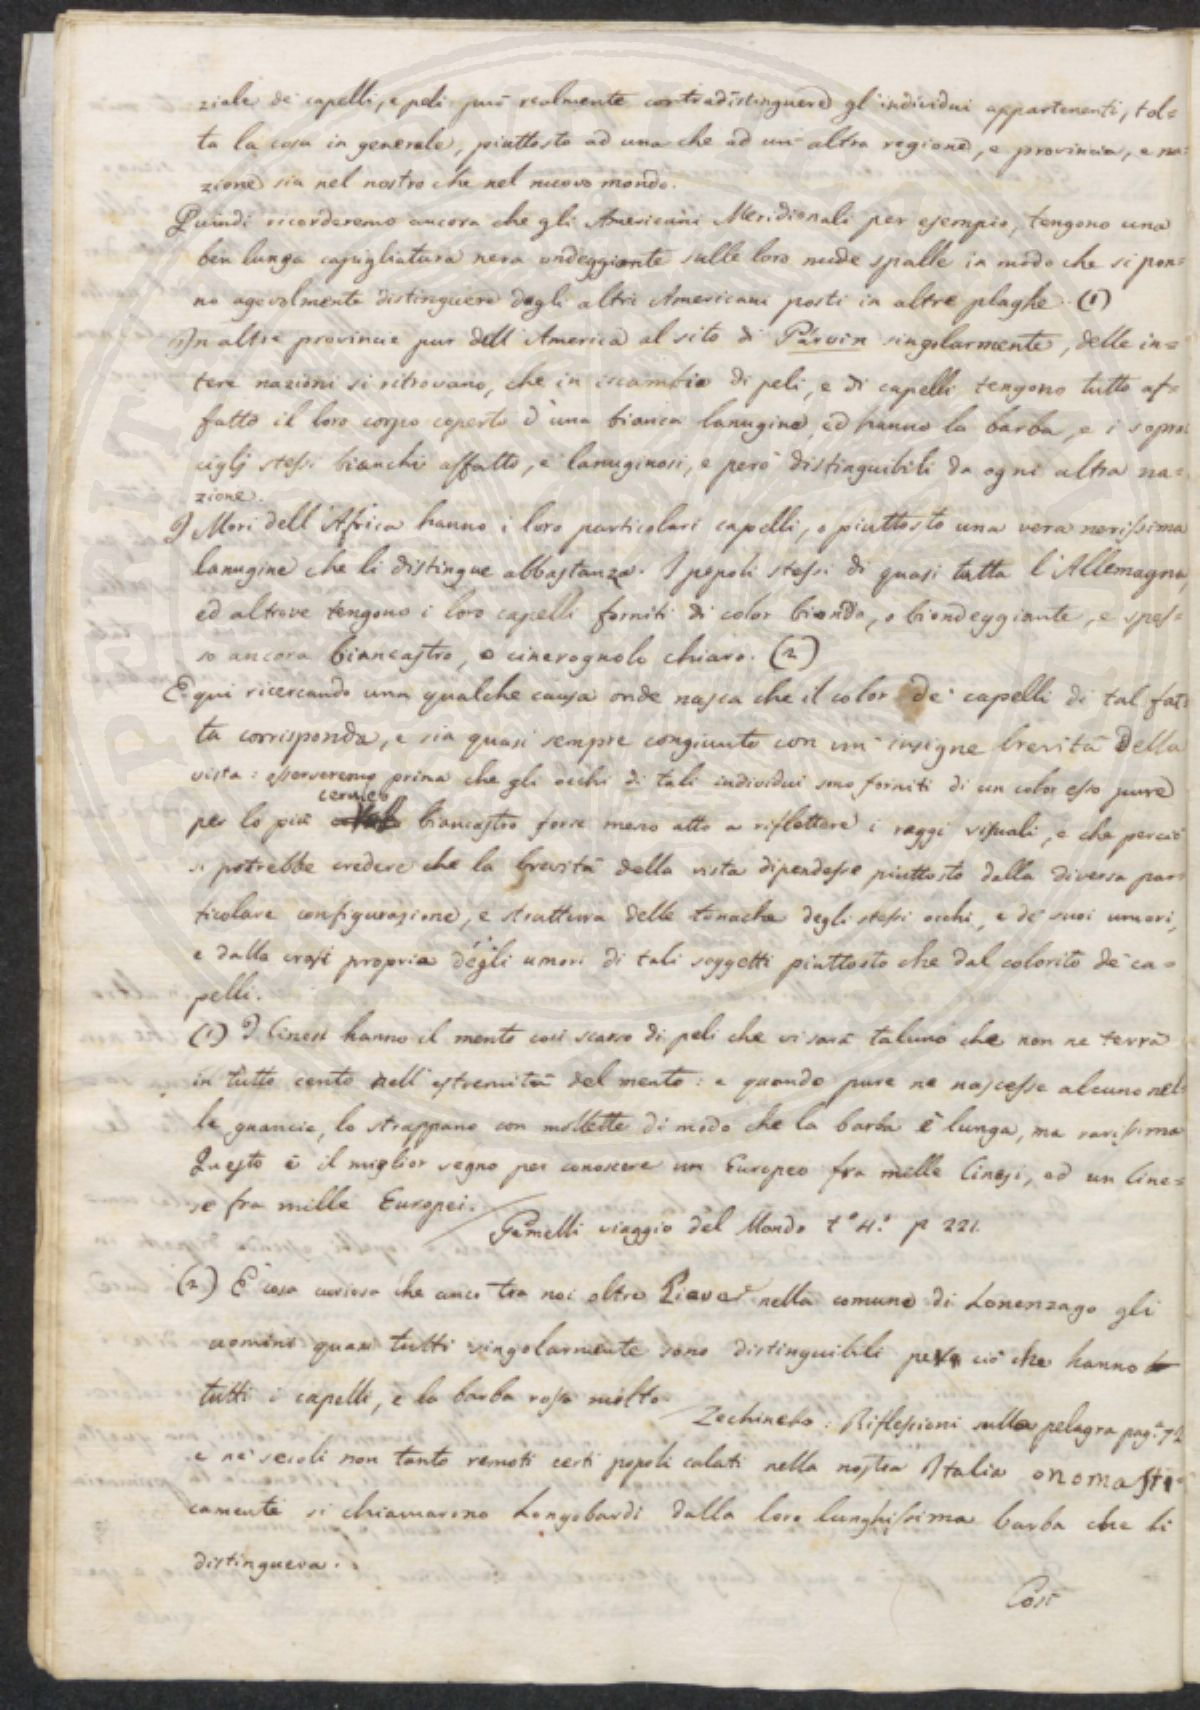 ziale de' capelli, e peli può realmente contradistinguere gl'individui appartenenti, tol=
ta la cosa in generale, piuttosto ad una che ad un'altra regione, e provincia, e na=
zione sia nel nostro che nel nuovo mondo.
Quindi ricorderemo ancora che gli Americani Meridionali per esempio, tengono una
ben lunga capigliatura nera ondeggiante sulle loro nude spalle in modo che si pon=
no agevolmente distinguere dagli altri Americani posti in altre plaghe. (1)
In altre provincie pur dell'America al sito di Parvin singolarmente, delle in=
tere nazioni si ritrovano, che in iscambio di peli, e di capelli tengono tutto af=
fatto il loro corpo coperto d'una bianca lanugine, ed hanno la barba, e i sopra
ciglj stessi bianchi affatto, e lanuginosi, e però distinguibili da ogni altra na=
zione.
I Mori dell'Africa hanno i loro particolari capelli, o piuttosto una vera nerissima
lanugine che li distingue abbastanza. I popoli stessi di quasi tutta l'Allemagna,
ed altrove tengono i loro capelli forniti di color biondo, o biondeggiante, e spes=
so ancora biancastro, o cinerognolo chiaro. (2)
E qui ricercando una qualche causa onde nasca che il color de' capelli di tal fat=
ta corrisponda, e sia quasi sempre congiunto con un'insigne brevità della
vista: osserveremo prima che gli occhi di tali individui sono forniti di un color esso pure
per lo più ceruleo biancastro forse meno atto a riflettere i raggi visuali, e che perciò
si potrebbe credere che la brevità della vista dipendesse piuttosto dalla diversa par=
ticolare configurazione, e struttura delle tonache degli stessi occhi, e de' suoi umori,
e dalla crasi propria degli umori di tali soggetti piuttosto che dal colorito de' ca=
pelli.
(1) I Cinesi hanno il mento così scarso di peli che vi sarà taluno che non ne terrà
in tutto cento nell'estremità del mento: e quando pure ne nascesse alcuno nel=
le guancie, lo strappano con mollette di modo che la barba è lunga, ma rarissima
Questo è il miglior segno per conoscere un Europeo fra mille Cinesi, ed un Cine=
se fra mille Europei.
Gemelli viaggio del Mondo t.o 4.o p 221.
(2) E' cosa curiosa che anco tra noi oltre Pieve nella comune di Lorenzago gli
uomini quasi tutti singolarmente sono distinguibili per ciò che hanno
tutti i capelli, e la barba rossa molto.
Zechinelo: Riflessioni sulla pelagra pag. 72
e ne' secoli non tanto remoti certi popoli calati nella nostra Italia onomasti=
camente si chiamarono Longobardi dalla loro lunghissima barba che li
distingueva.
Così